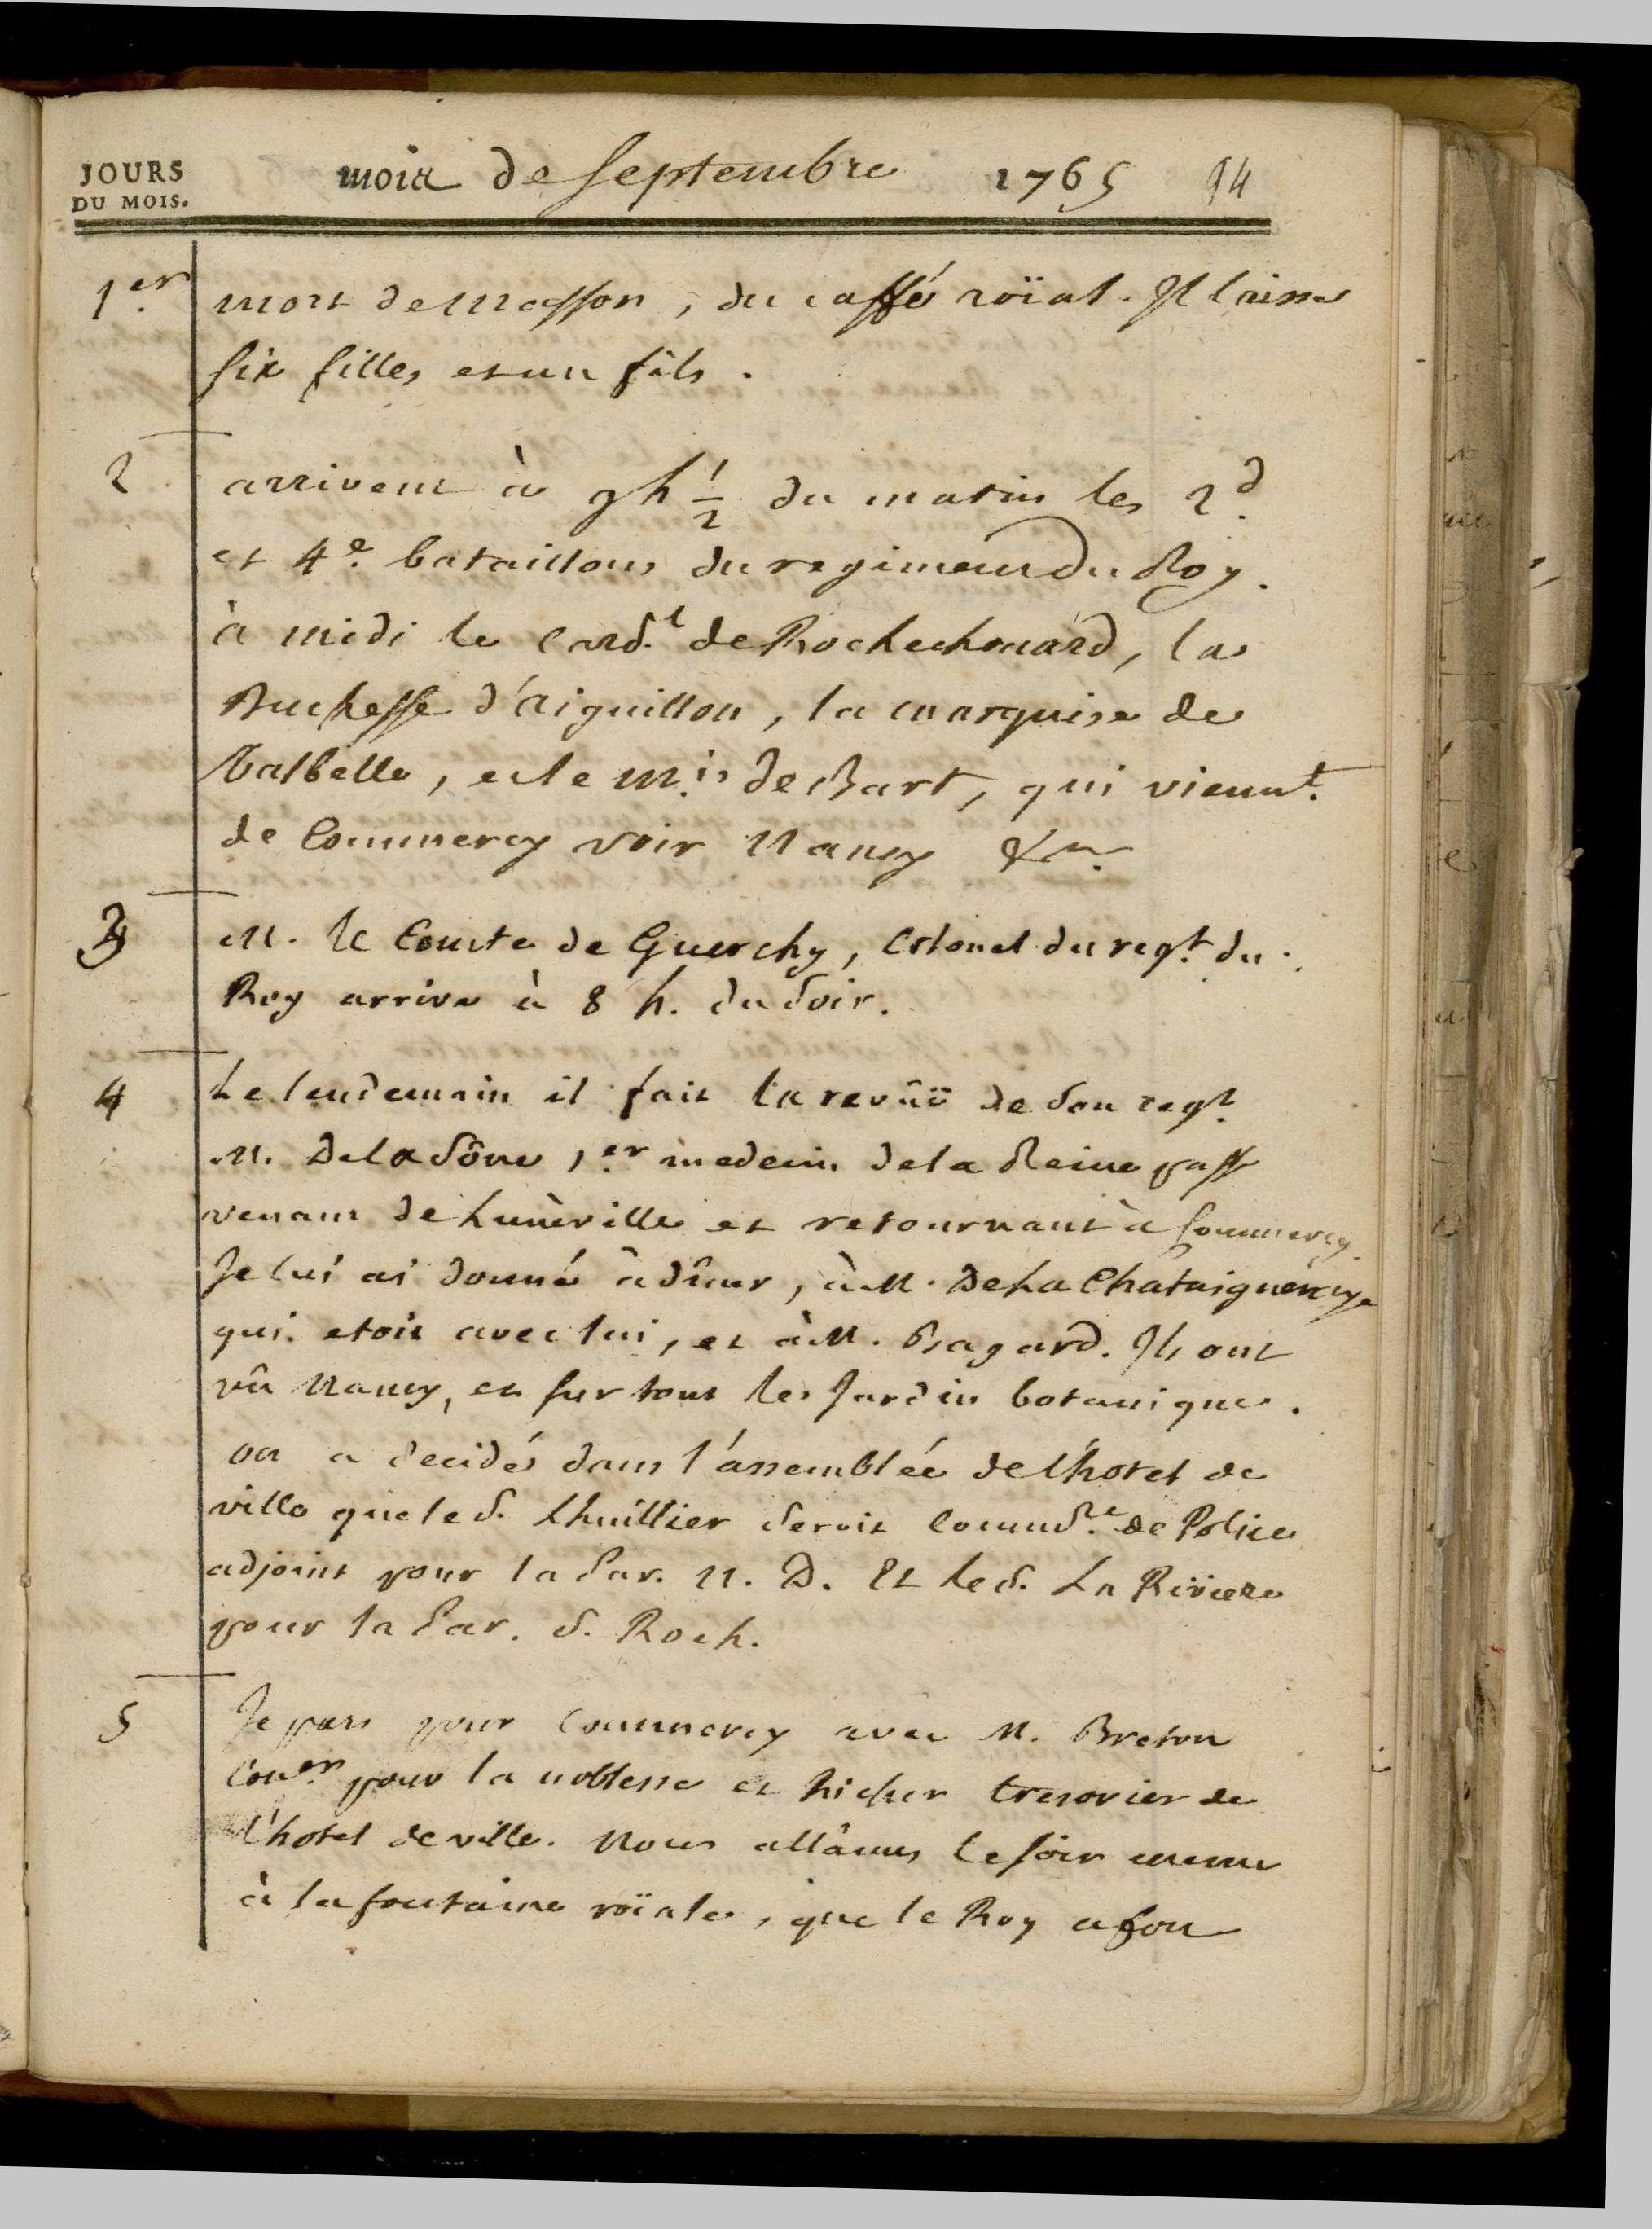 JOURS
DU MOIS.
mois de septembre 1765 94
1er. mort de masson, du caffé roïal. Il laisse
six filles et un fils.
2 arrivent à 9 h 1/2 du matin les 2d.
et 4e. bataillons du regiment du Roy.
à midi le card.l de Rochechouard, la
Duchesse d'aiguillon, la marquise de
Valbelle, et le M.is de Bart, qui viennt.
de Commercy voir Nancy &a.
3 M. le Comte de Guerchy, Colonel du regt. du
Roy arrive à 8 h. du soir.
4 Le lendemain il fait la revûü de son regt.
M. De la Sône 1er. medecin de la Reine passe
venant de Lunéville et retournant à Commercy.
Je lui ai donné à dîner, à M. De La Chataigneraye
qui etoit avec lui, et à M. Bagard. Ils ont
vû Nancy, et sur tout le Jardin botanique.
on a decidé dans l'assemblée de l'hotel de
ville que le S. Lhuillier seroit Commdre. de Police
adjoint pour la Par. N. D. Et le S. La Riviere
pour la Par. S. Roch.
5 Je pars pour Commercy avec M. Breton
Conser pour la noblesse et Richer tresorier de
l'hotel de ville. Nous allâmes le soir meme
à la fontaine roïale, que le Roy a fon